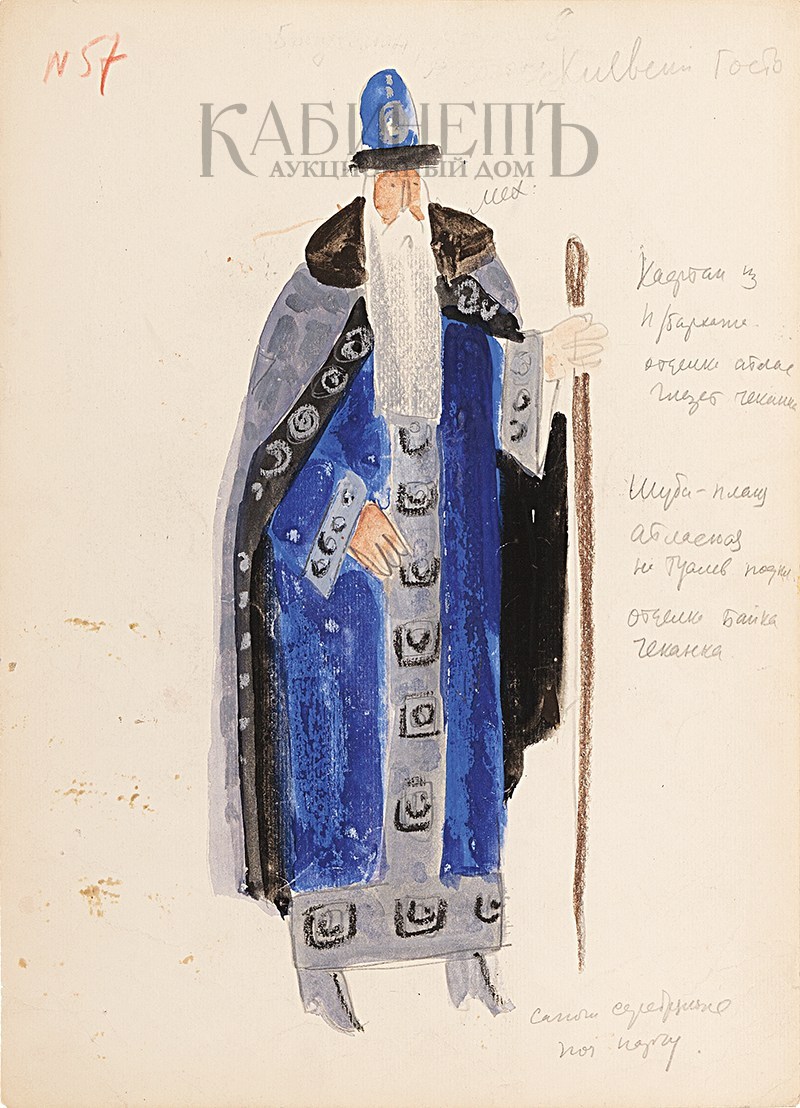 N 57
Гость
КАБИНЕТЪ
АУКЦИОННЫЙ ДОМ
мех.
Кафтан из
п/бархата.
отделка атлас
глазет чеканка
Шуба-плащ
атласная
отделка байка
чеканка
сапоги серебряные
под парчу.